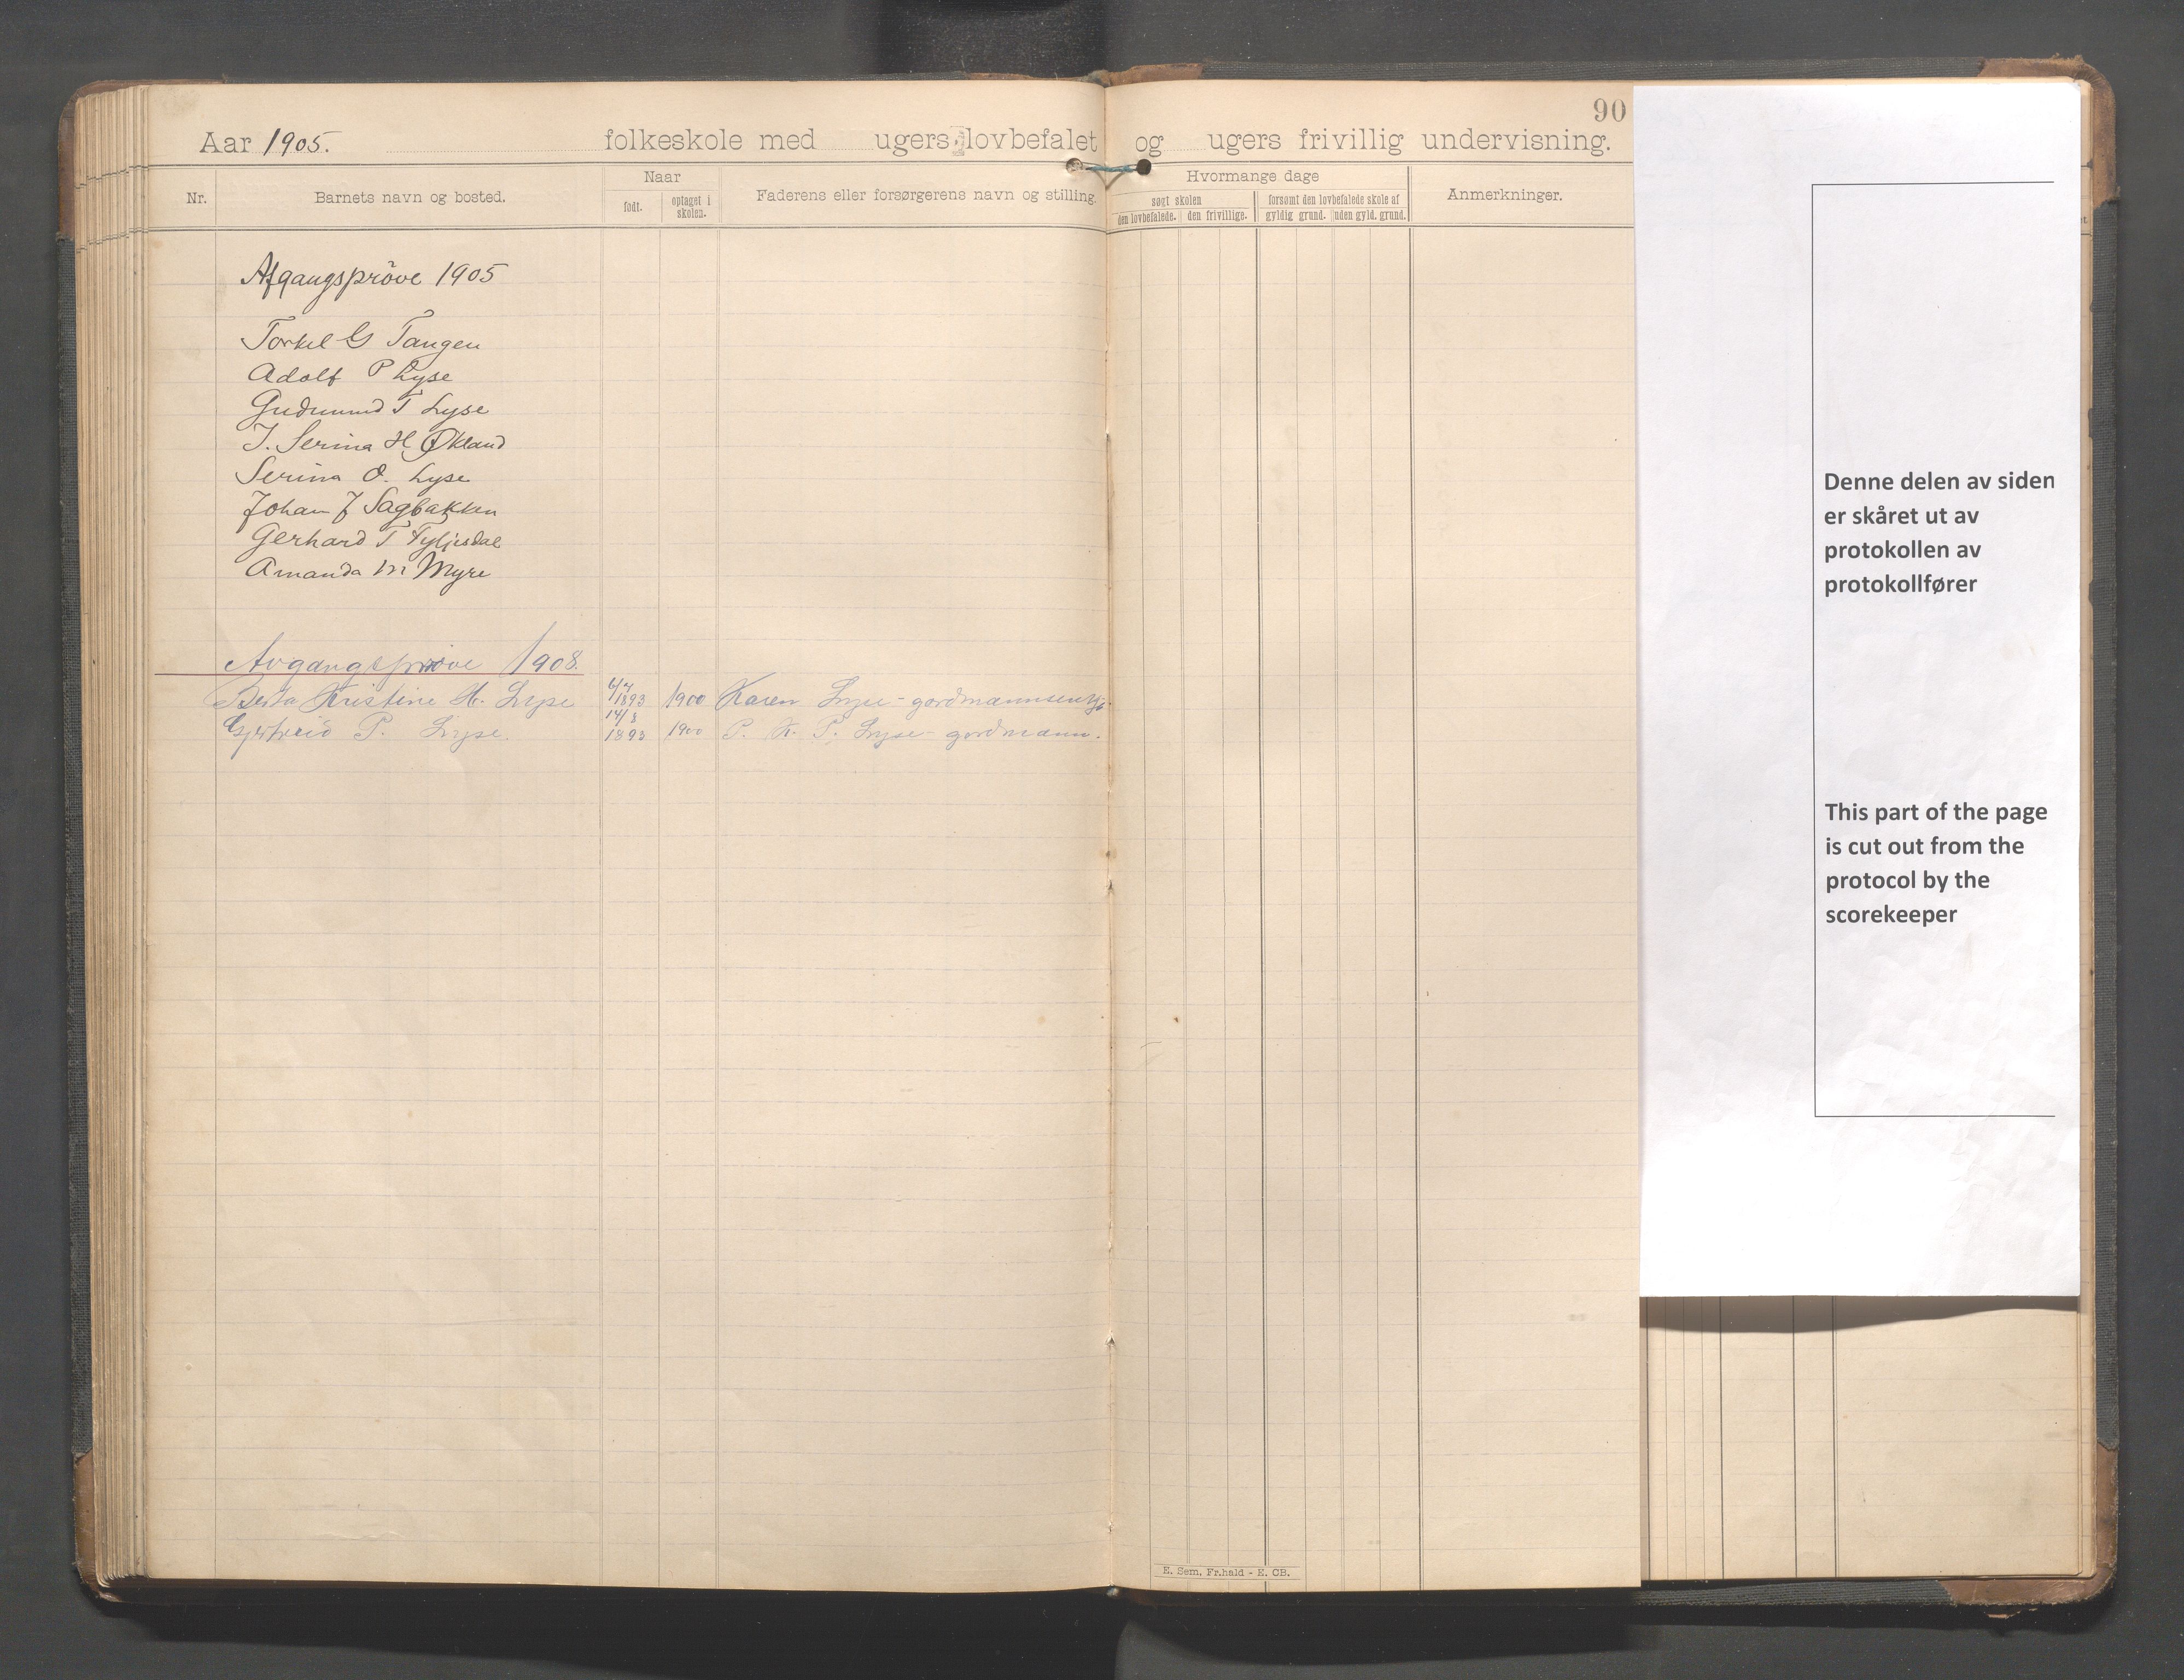 90
Aar 1905. folkeskole med ugers lovbefalet og ugers frivillig undervisning.
Nr. Barnets navn og bosted. Naar født. optaget i skolen. Faderens eller forsørgerens navn og stilling. Hvormange dage søgt skolen den lovbefalede. den frivillige. forsømt den lovbefalede skole af gyldig grund. uden gyld. grund. Anmerkninger.
Afgangspröve 1905
Torkel G Tangen
Adolf P Lyse
Gudmund T Lyse
J. Serina H. Økland
Serina O. Lyse
Johan J Sagbakken
Gerhard T Fyljesdal
Amanda M Myre
Avgangsprøve 1908.
Berta Kristine H. Lyse 6/7 1893 1900 Karen Lyse - gardmannsenkje
Gjertreid P. Lyse. 14/8 1893 1900 P. K. P. Lyse - gardmann.
E. Sem, Fr.hald - E. CB.
Denne delen av siden
er skåret ut av
protokollen av
protokollfører
This part of the page
is cut out from the
protocol by the
scorekeeper